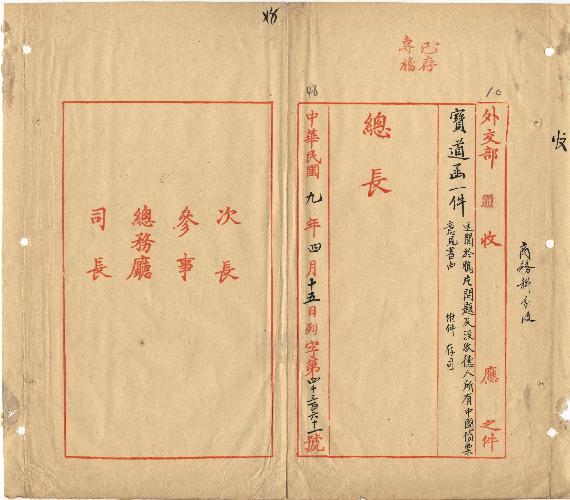 收
商務科分发
10
已存
專檔
外交部 收 應 之件
寶道函一件
送關於鴉片問題及沒收德人所有中國債票
意見書由
附件存司
總長
46
中華民國九年四月十五日列字第四千三百六十一號
次長
參事
總務廳
司長